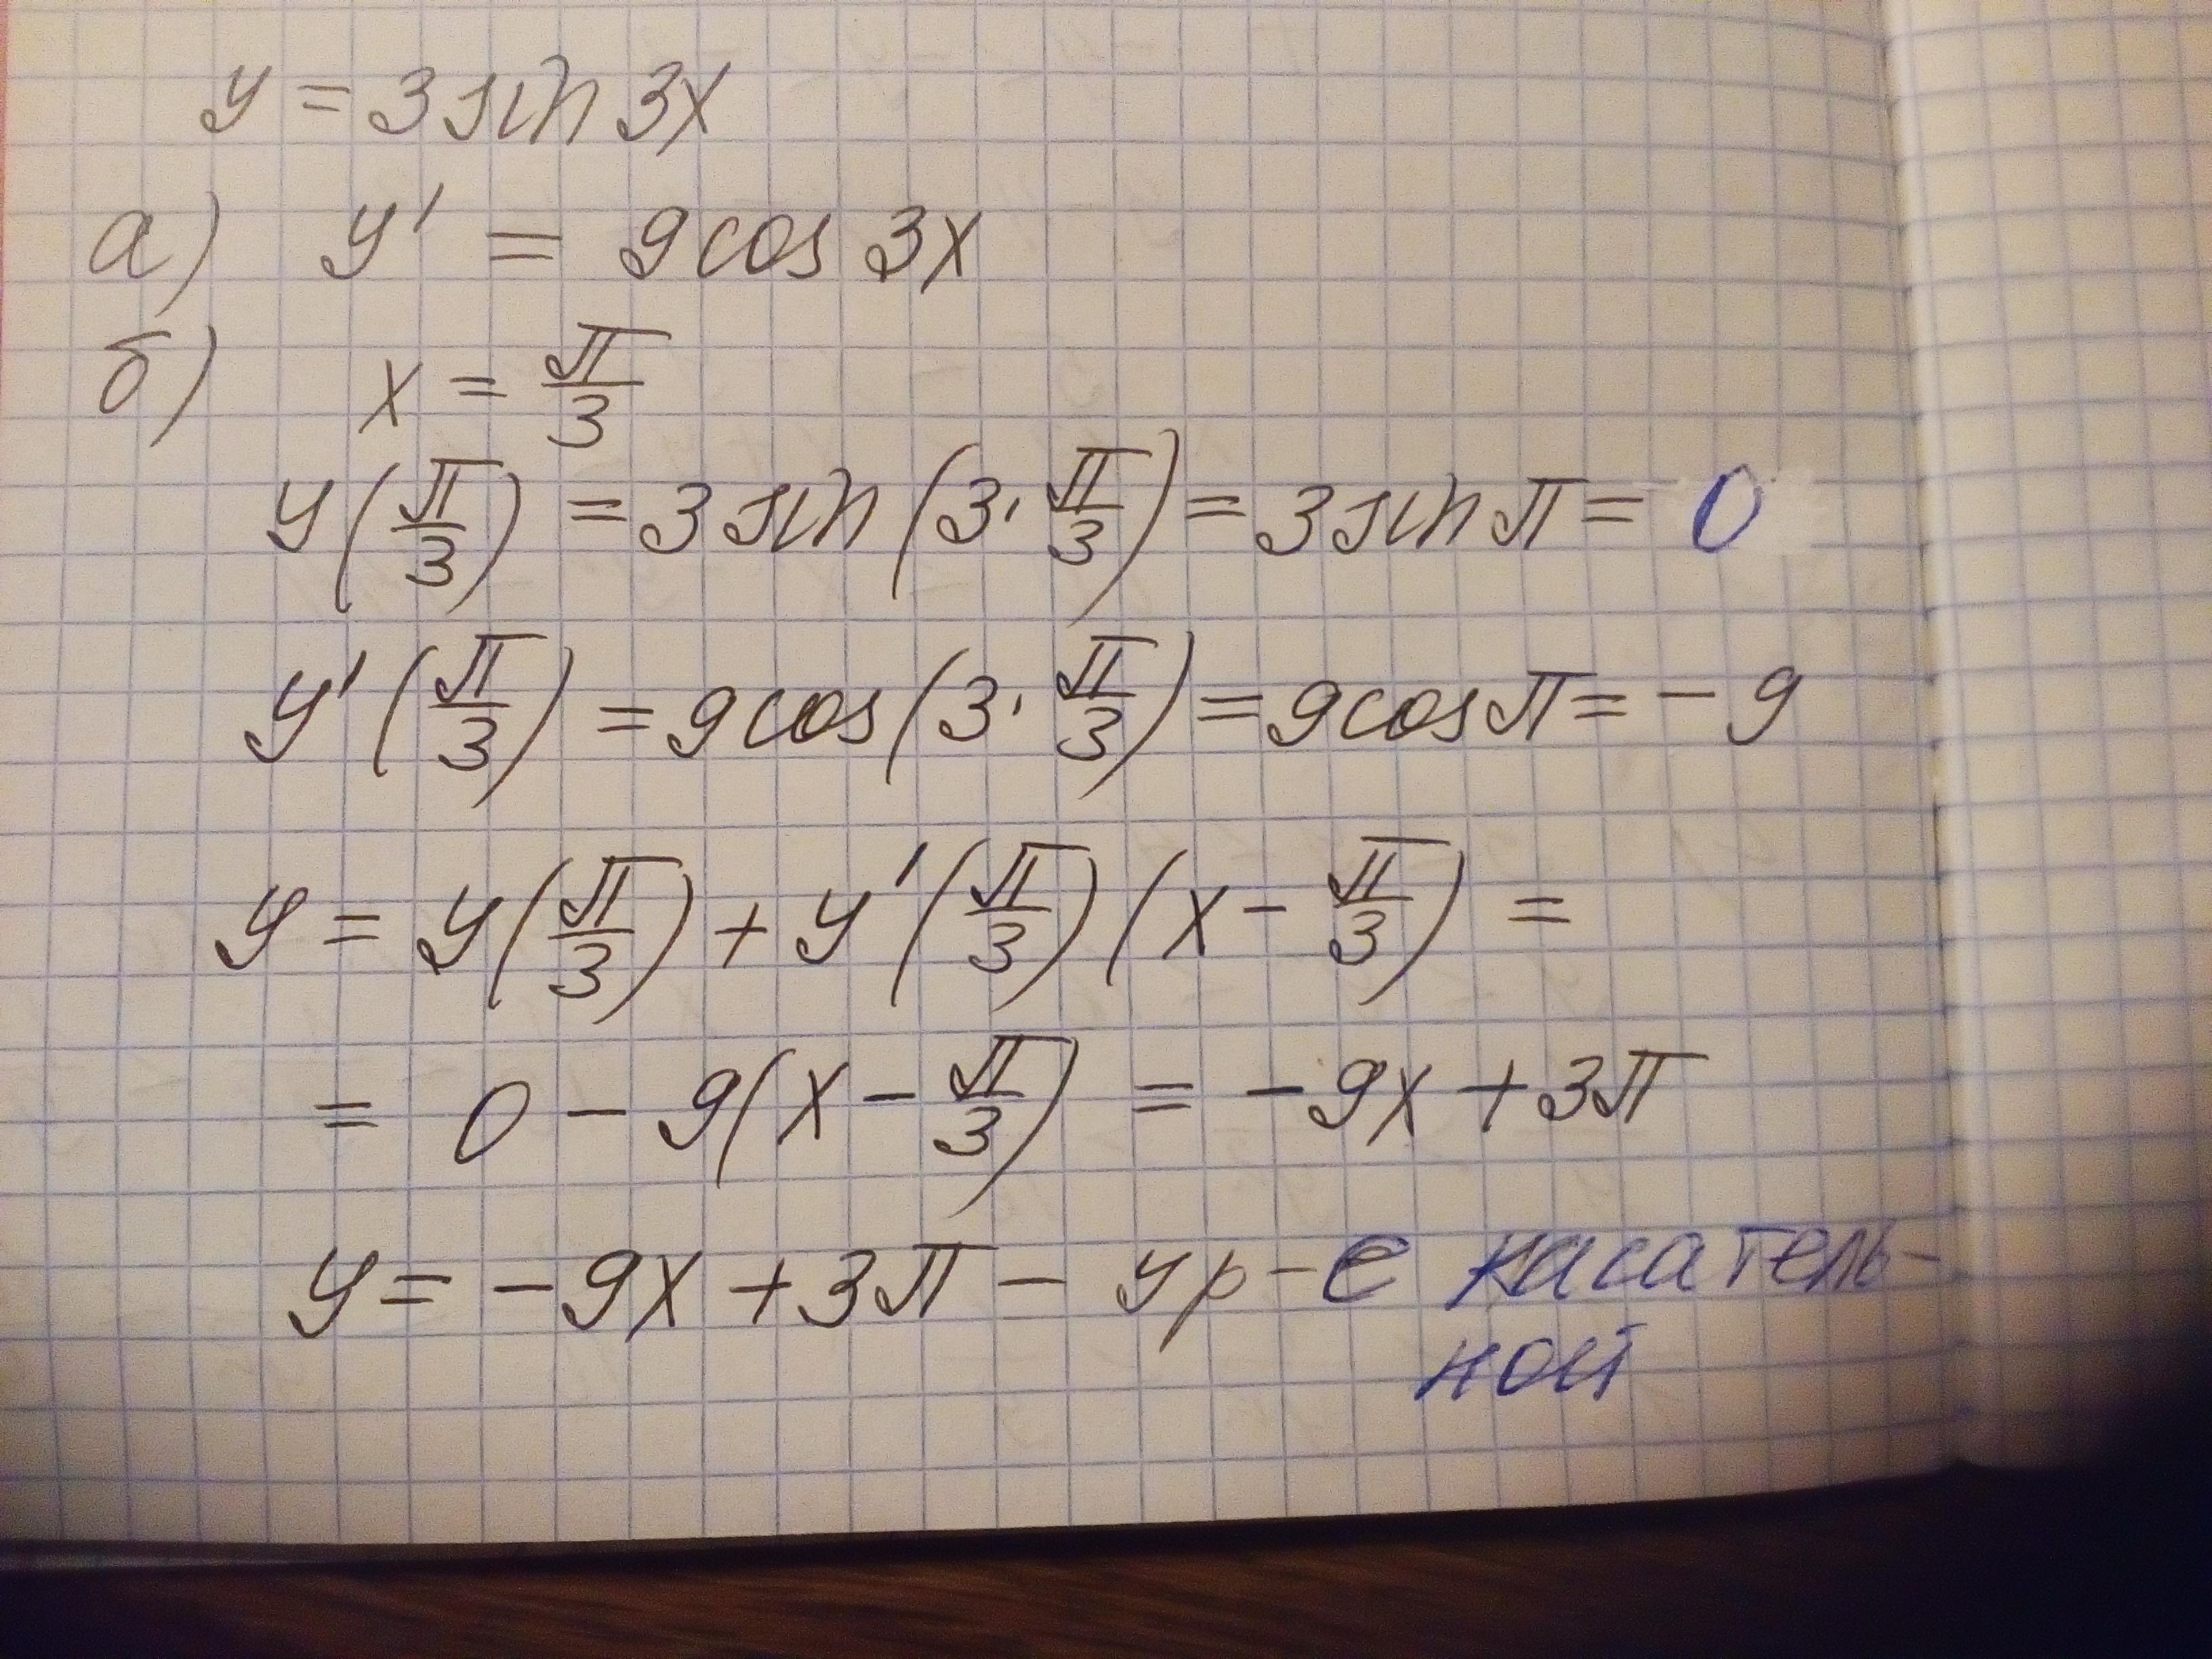 y = 3 sin 3x
а) y' = 9 cos 3x
б) x = π/3
y(π/3) = 3 sin(3·π/3) = 3 sin π = 0
y'(π/3) = 9 cos(3·π/3) = 9 cos π = -9
y = y(π/3) + y'(π/3)(x - π/3) =
= 0 - 9(x - π/3) = -9x + 3π
y = -9x + 3π - ур-е касатель-
ной